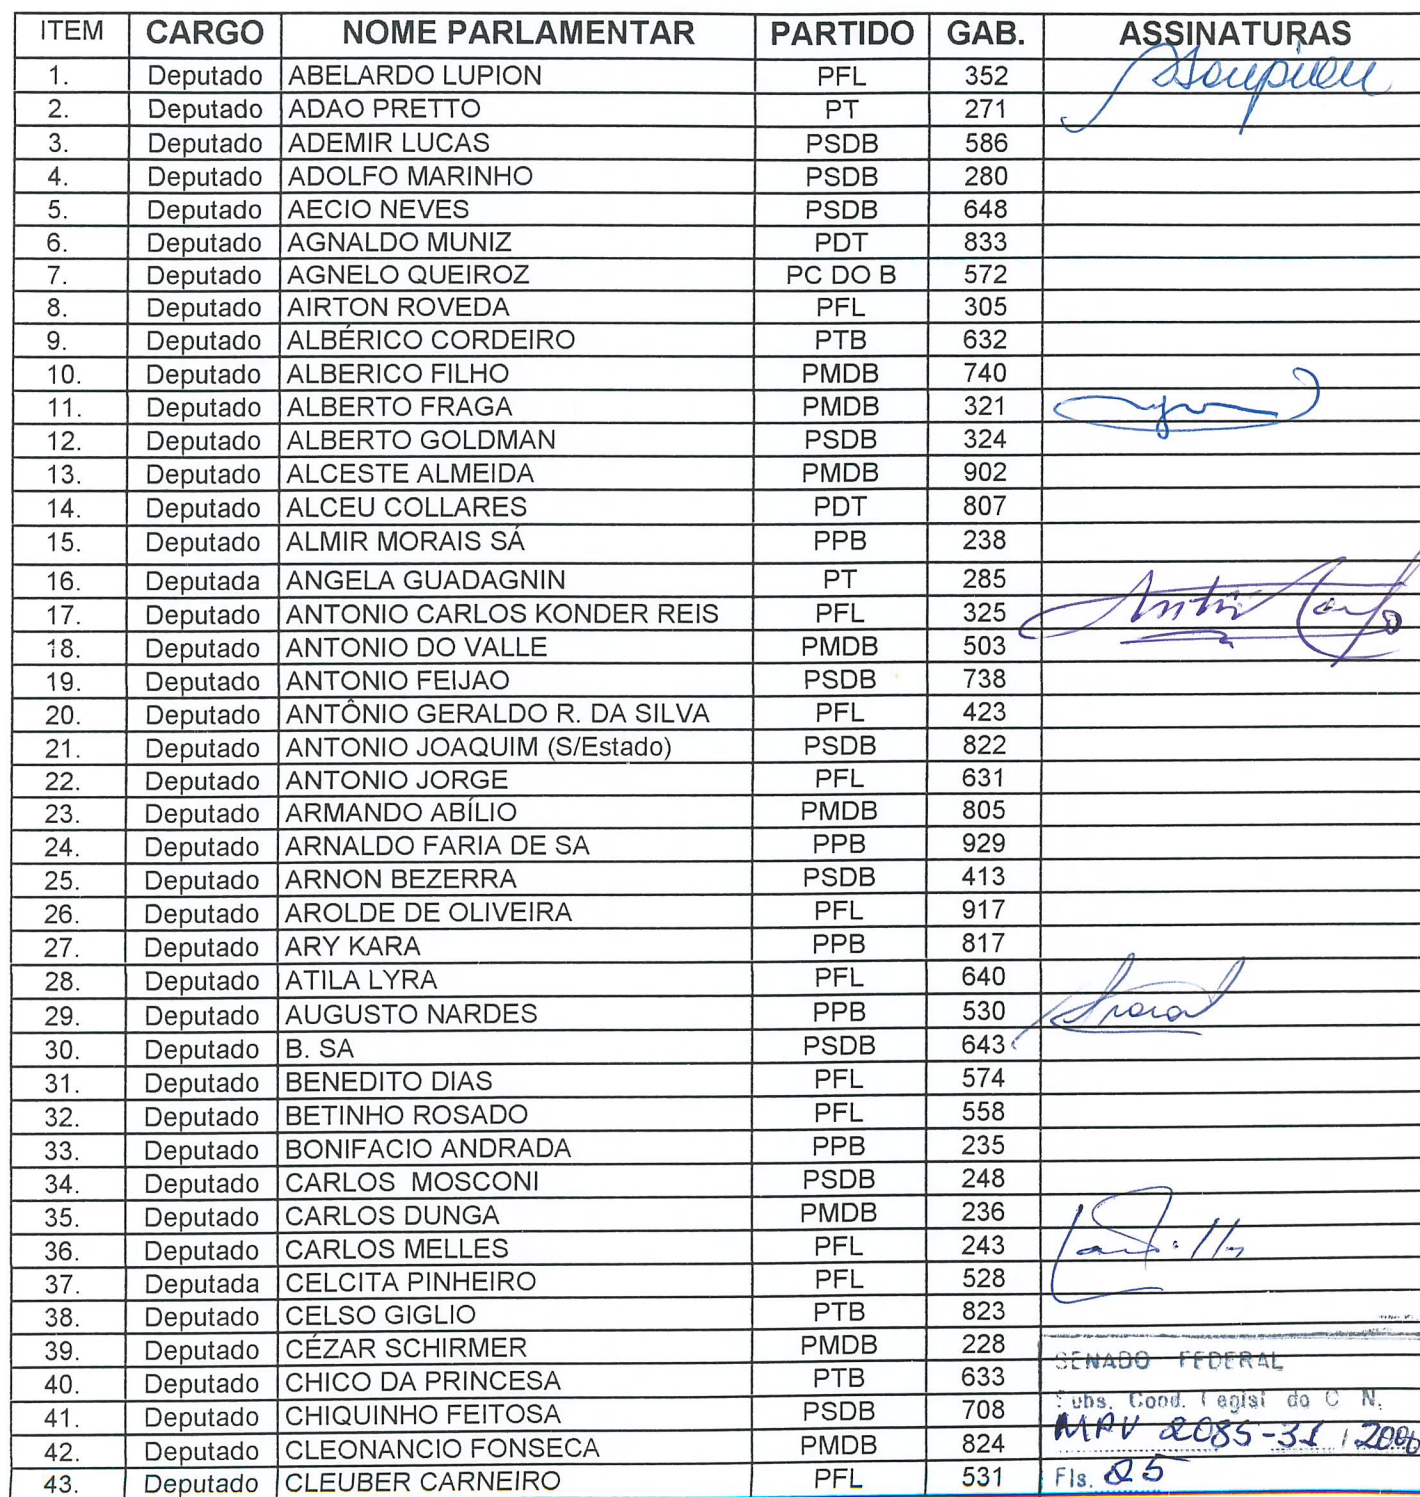 ITEM CARGO NOME PARLAMENTAR PARTIDO GAB. ASSINATURAS
1. Deputado ABELARDO LUPION PFL 352
2. Deputado ADAO PRETTO PT 271
3. Deputado ADEMIR LUCAS PSDB 586
4. Deputado ADOLFO MARINHO PSDB 280
5. Deputado AECIO NEVES PSDB 648
6. Deputado AGNALDO MUNIZ PDT 833
7. Deputado AGNELO QUEIROZ PC DO B 572
8. Deputado AIRTON ROVEDA PFL 305
9. Deputado ALBÉRICO CORDEIRO PTB 632
10. Deputado ALBERICO FILHO PMDB 740
11. Deputado ALBERTO FRAGA PMDB 321
12. Deputado ALBERTO GOLDMAN PSDB 324
13. Deputado ALCESTE ALMEIDA PMDB 902
14. Deputado ALCEU COLLARES PDT 807
15. Deputado ALMIR MORAIS SÁ PPB 238
16. Deputada ANGELA GUADAGNIN PT 285
17. Deputado ANTONIO CARLOS KONDER REIS PFL 325
18. Deputado ANTONIO DO VALLE PMDB 503
19. Deputado ANTONIO FEIJAO PSDB 738
20. Deputado ANTÔNIO GERALDO R. DA SILVA PFL 423
21. Deputado ANTONIO JOAQUIM (S/Estado) PSDB 822
22. Deputado ANTONIO JORGE PFL 631
23. Deputado ARMANDO ABÍLIO PMDB 805
24. Deputado ARNALDO FARIA DE SA PPB 929
25. Deputado ARNON BEZERRA PSDB 413
26. Deputado AROLDE DE OLIVEIRA PFL 917
27. Deputado ARY KARA PPB 817
28. Deputado ATILA LYRA PFL 640
29. Deputado AUGUSTO NARDES PPB 530
30. Deputado B. SA PSDB 643
31. Deputado BENEDITO DIAS PFL 574
32. Deputado BETINHO ROSADO PFL 558
33. Deputado BONIFACIO ANDRADA PPB 235
34. Deputado CARLOS MOSCONI PSDB 248
35. Deputado CARLOS DUNGA PMDB 236
36. Deputado CARLOS MELLES PFL 243
37. Deputada CELCITA PINHEIRO PFL 528
38. Deputado CELSO GIGLIO PTB 823
39. Deputado CÉZAR SCHIRMER PMDB 228
SENADO FEDERAL
40. Deputado CHICO DA PRINCESA PTB 633
Subs. Coord. Legisl. do C. N.
41. Deputado CHIQUINHO FEITOSA PSDB 708
42. Deputado CLEONANCIO FONSECA PMDB 824 MPV 2085-31 / 2000
43. Deputado CLEUBER CARNEIRO PFL 531 Fls. 25